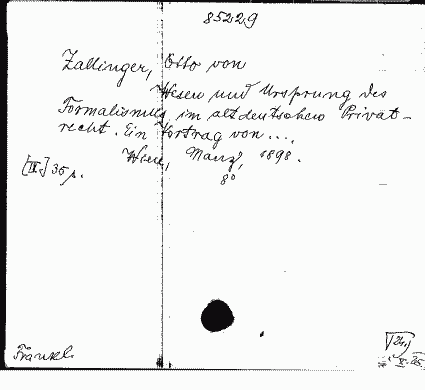 85229
Zallinger, Otto von
Wesen und Ursprung des
Formalismus im altdeutschen Privat-
recht. Ein Vortrag von ....
Wien, Manz, 1898.
[III.] 35 p.
8°
Fränkel